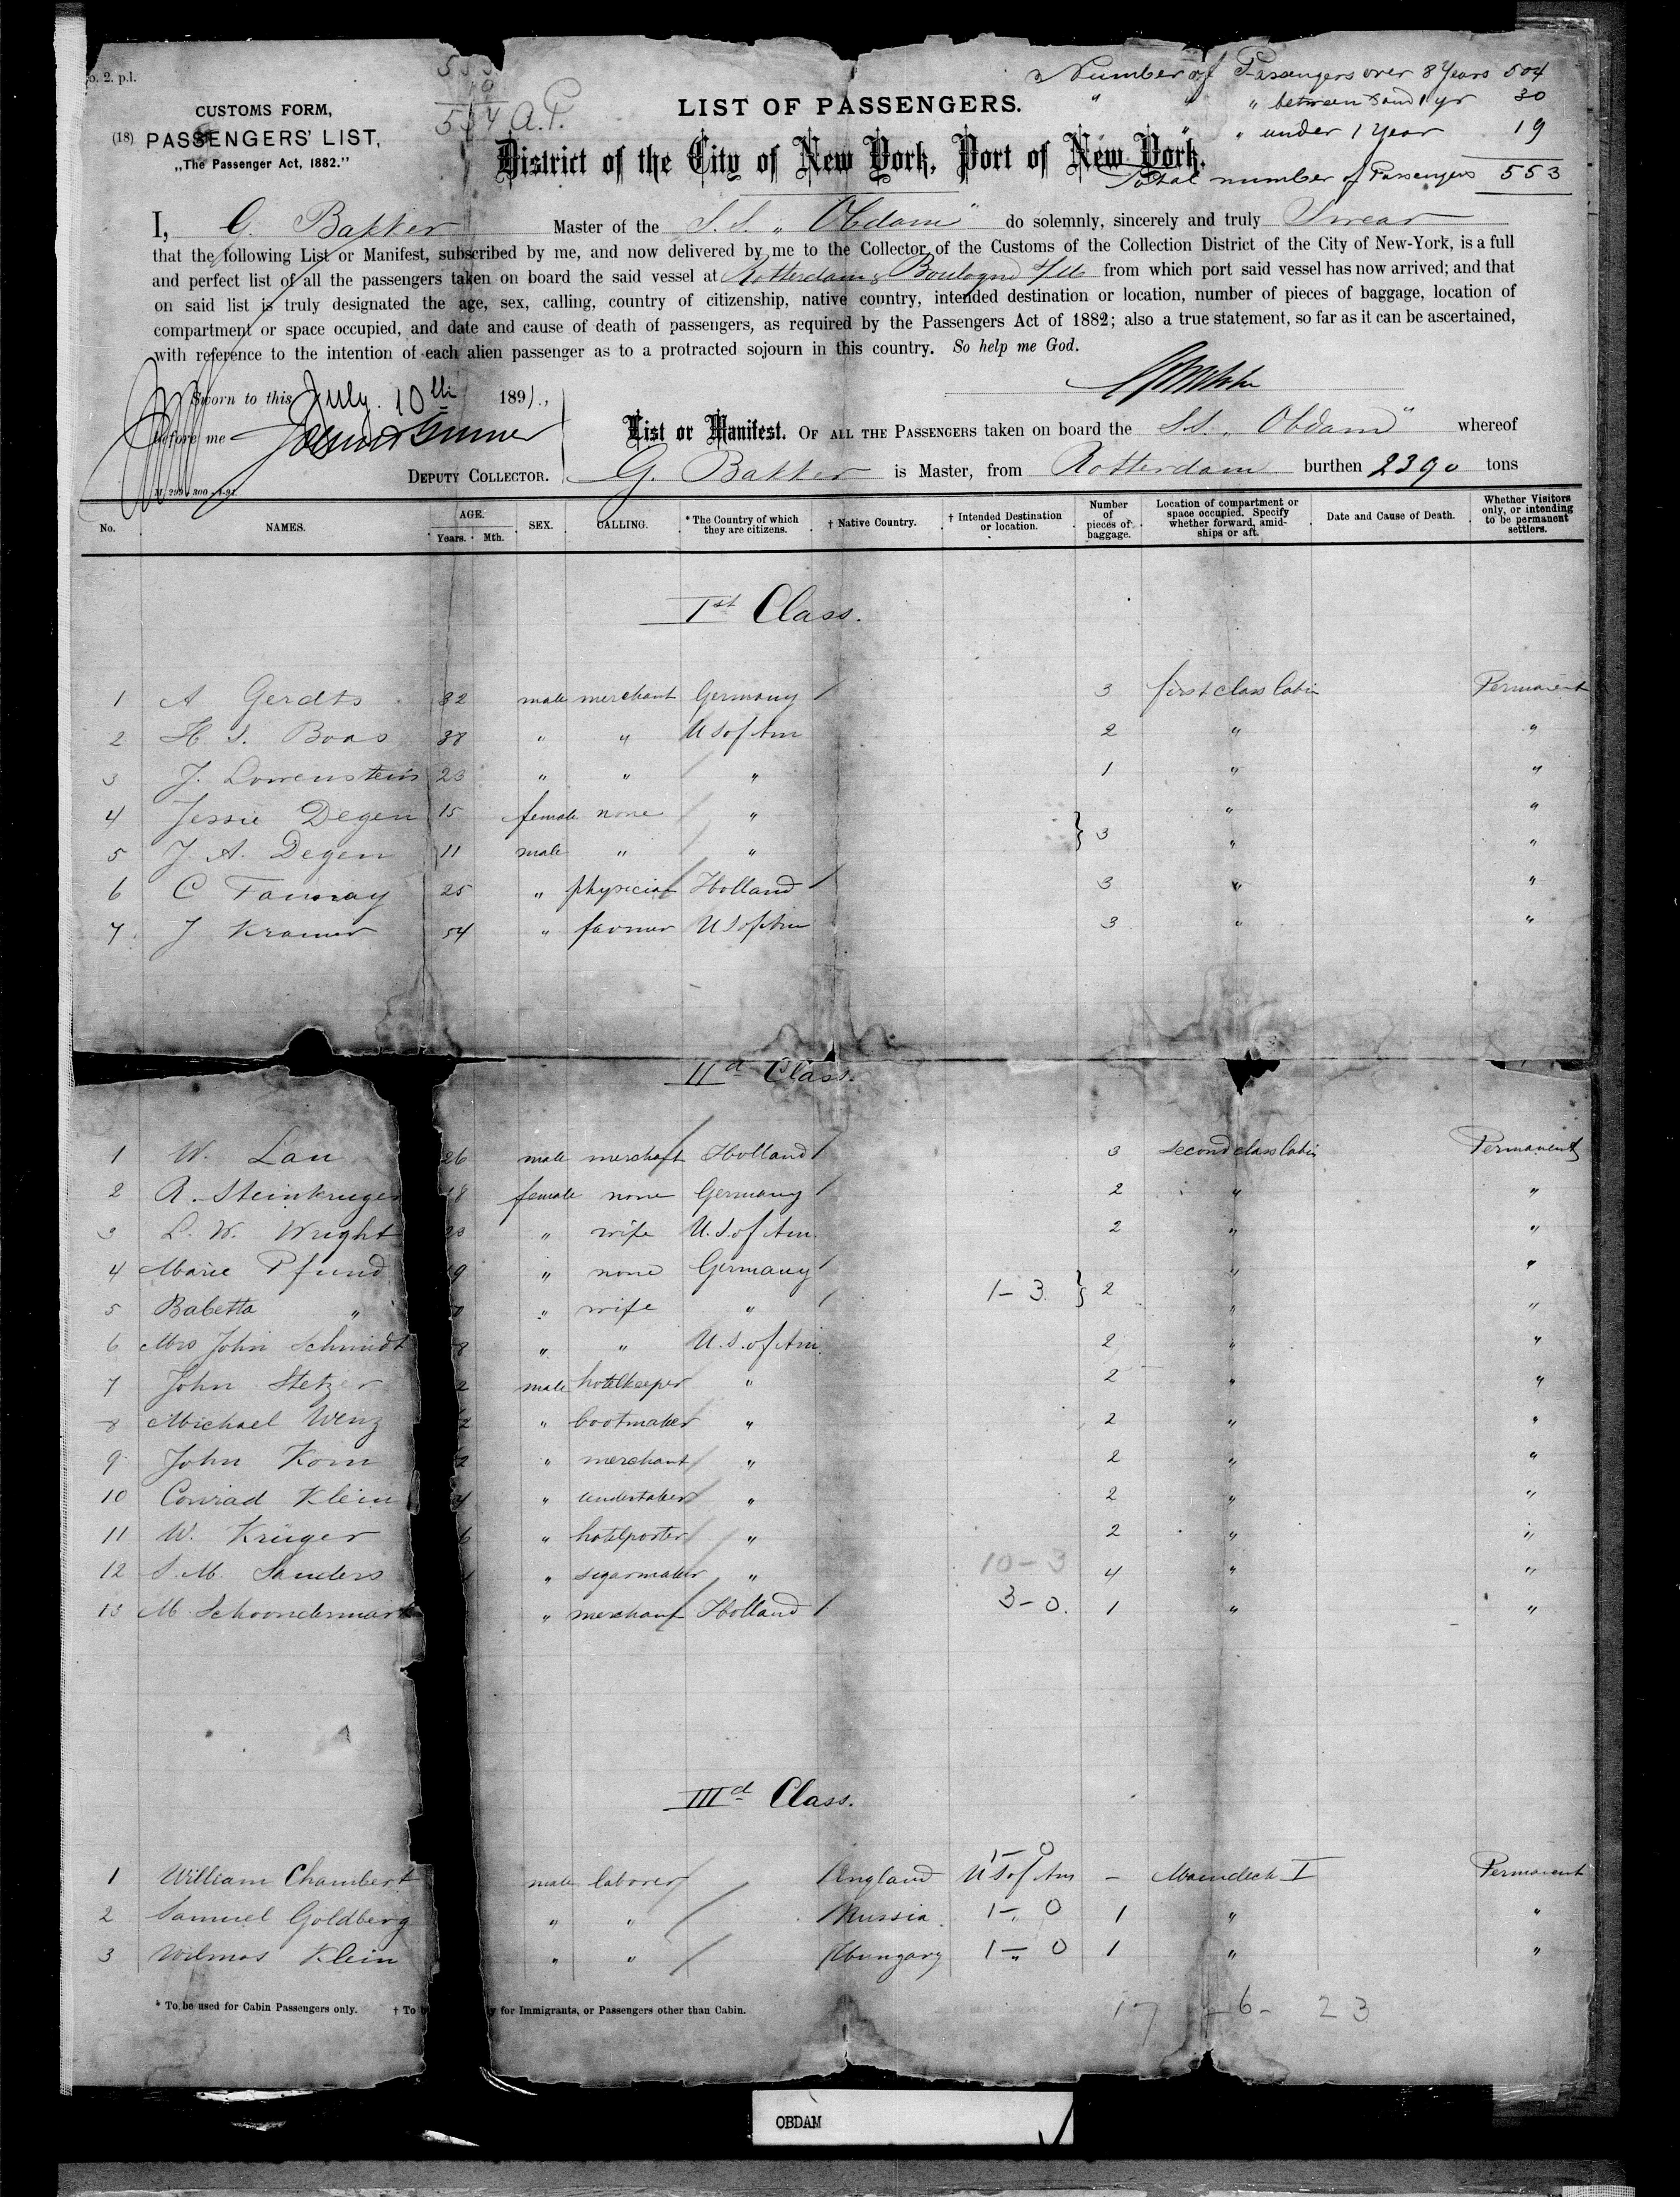 o. 2. p.l.
CUSTOMS FORM,
(18) PASSENGERS' LIST,
„The Passenger Act, 1882."
534 A.P.
LIST OF PASSENGERS.
District of the City of New York, Port of New York.
Number of Passengers over 8 Years 504
" " " between 8 and 1 yr 30
" " under 1 Year 19
Total number of Passengers 553
I, G. Bakker Master of the S.S. „Obdam" do solemnly, sincerely and truly Swear
that the following List or Manifest, subscribed by me, and now delivered by me to the Collector of the Customs of the Collection District of the City of New-York, is a full
and perfect list of all the passengers taken on board the said vessel at Rotterdam & Boulogne s/M from which port said vessel has now arrived; and that
on said list is truly designated the age, sex, calling, country of citizenship, native country, intended destination or location, number of pieces of baggage, location of
compartment or space occupied, and date and cause of death of passengers, as required by the Passengers Act of 1882; also a true statement, so far as it can be ascertained,
with reference to the intention of each alien passenger as to a protracted sojourn in this country. So help me God.
Sworn to this July 10th 1891.,
Before me
DEPUTY COLLECTOR.
List or Manifest. OF ALL THE PASSENGERS taken on board the S.S. „Obdam" whereof
G. Bakker is Master, from Rotterdam burthen 2390 tons
No. NAMES. AGE. Years. Mth. SEX. CALLING. * The Country of which they are citizens. † Native Country. † Intended Destination or location. Number of pieces of baggage. Location of compartment or space occupied. Specify whether forward, amidships or aft. Date and Cause of Death. Whether Visitors only, or intending to be permanent settlers.
Ist Class.
1 A Gerdts 32 male merchant Germany / 3 first class Cabin Permanent
2 H S. Boas 38 " " U S of Am 2 " "
3 J. Lowenstein 23 " " / " 1 " "
4 Jessie Degen 15 female none / " " "
5 J. A. Degen 11 male " / " } 3 " "
6 C 25 " physician Holland / 3 " "
7 J Kramer 54 " farmer U S of Am 3 " "
IId Class.
1 W. Lau 26 male merchant Holland / 3 second class Cabin Permanent
2 A. Steinkruger 18 female none Germany / 2 " "
3 L. W. Wright " wife U.S. of Am. 2 " "
4 Marie Pfund 9 " none Germany / " "
5 Babetta " " wife " / 1-3. } 2 " "
6 Mrs John Schmidt 8 " " U.S. of Am. 2 " "
7 John Stetzer 2 male hotelkeeper " 2 " "
8 Michael Wenz 2 " bootmaker " 2 " "
9 John Korn 2 " merchant / " 2 " "
10 Conrad Klein 4 " undertaker / " 2 " "
11 W. Krüger 6 " hotelporter / " 2 " "
12 S. M. Sanders " segarmaker " 10-3 4 " "
13 M. Schoondermark " merchant Holland / 3-0. 1 " "
IIId Class.
1-0
1 William Chambert male laborer / England U S of Am - Maindeck I Permanent
2 Samuel Goldberg " " / Russia 1-0 " 1 " "
3 Wilmos Klein " " / Hungary 1-0 " 1 " "
* To be used for Cabin Passengers only. † To b y for Immigrants, or Passengers other than Cabin.
17 - 6 - 23
OBDAM